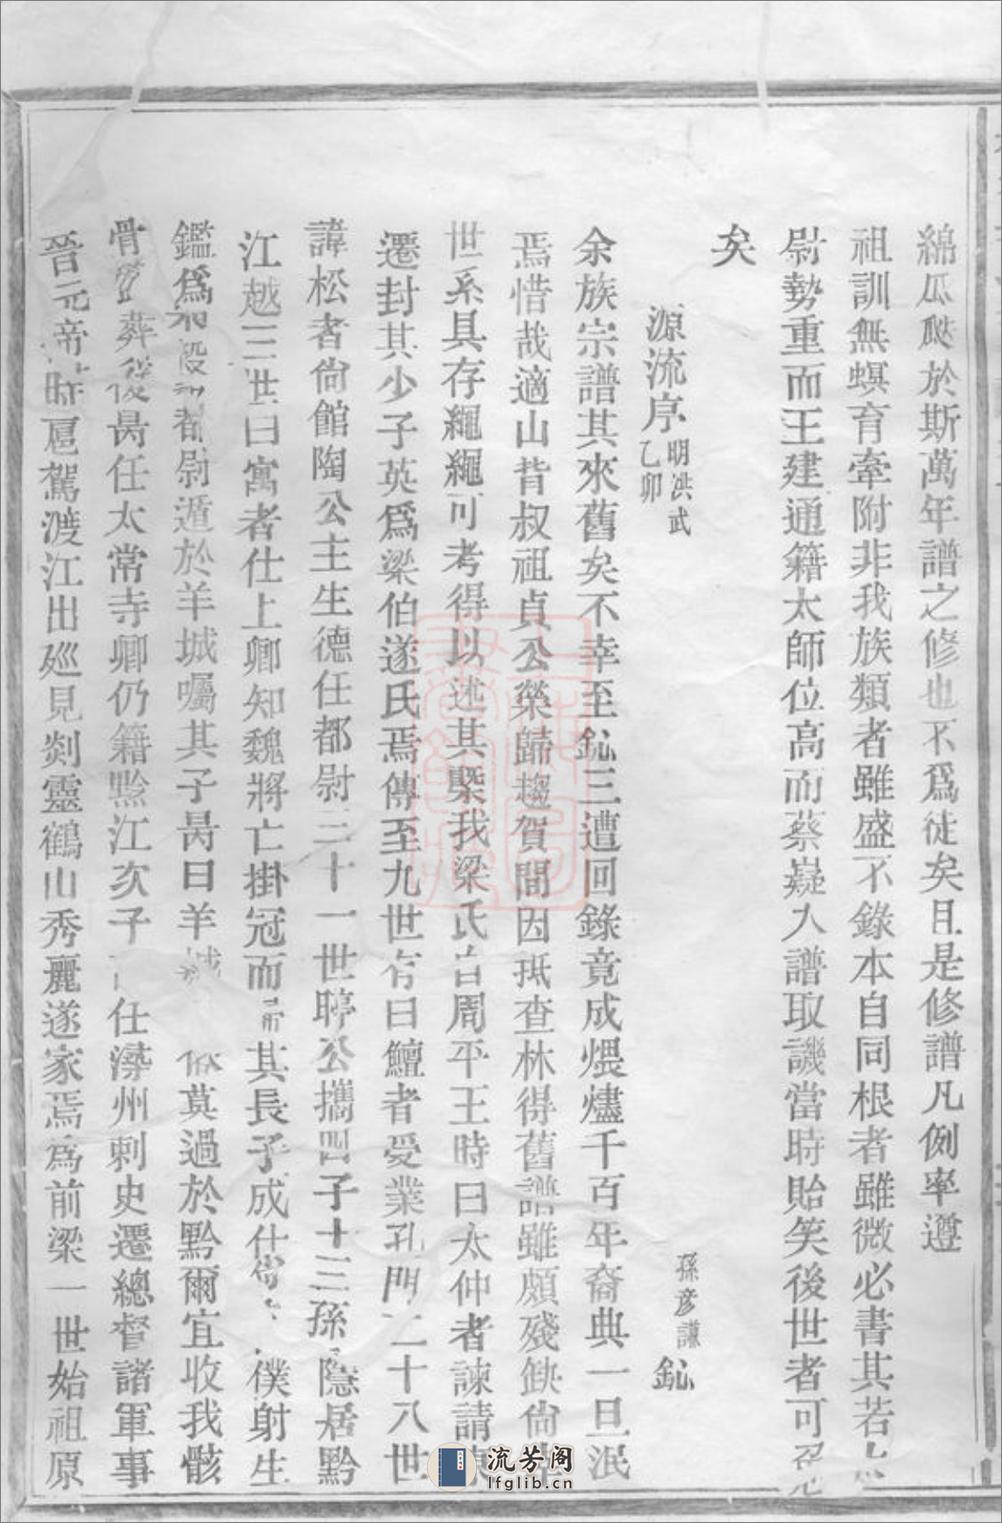 綿瓜瓞於斯萬年譜之修也不爲徒矣且是修譜凡例率遵
祖訓無螟育牽附非我族類者雖盛不錄本自同根者雖微必書其若
尉勢重而王建通籍太師位高而蔡嶷入譜取譏當時貽笑後世者可
矣
源流序 明洪武乙卯 孫彥謙 鈨
余族宗譜其來舊矣不幸至鈨三遭回錄竟成煨燼千百年裔典一旦泯
焉惜哉適山背叔祖貞公榮歸趨賀間因抵查林得舊譜雖頗殘缺尙
世系具存繩繩可考得以述其槩我梁氏自周平王時曰太仲者諫請
遷封其少子英爲梁伯遂氏焉傳至九世有曰鱣者受業孔門二十八世
諱松者尙館陶公主生德任都尉三十一世聤公攜四子十三孫隱居黔
江越三世曰寓者仕上卿知魏將亡掛冠而 其長子成仕 僕射生
鑑爲 都尉遁於羊城囑其子昺曰羊城 俗莫過於黔爾宜收我骸
骨 葬後昺任太常寺卿仍籍黔江次子 仕 州刺史遷總督諸軍事
晉元帝時扈駕渡江出廵見剡靈鶴山秀麗遂家焉爲前梁一世始祖原
流芳阁
lfglib.cn